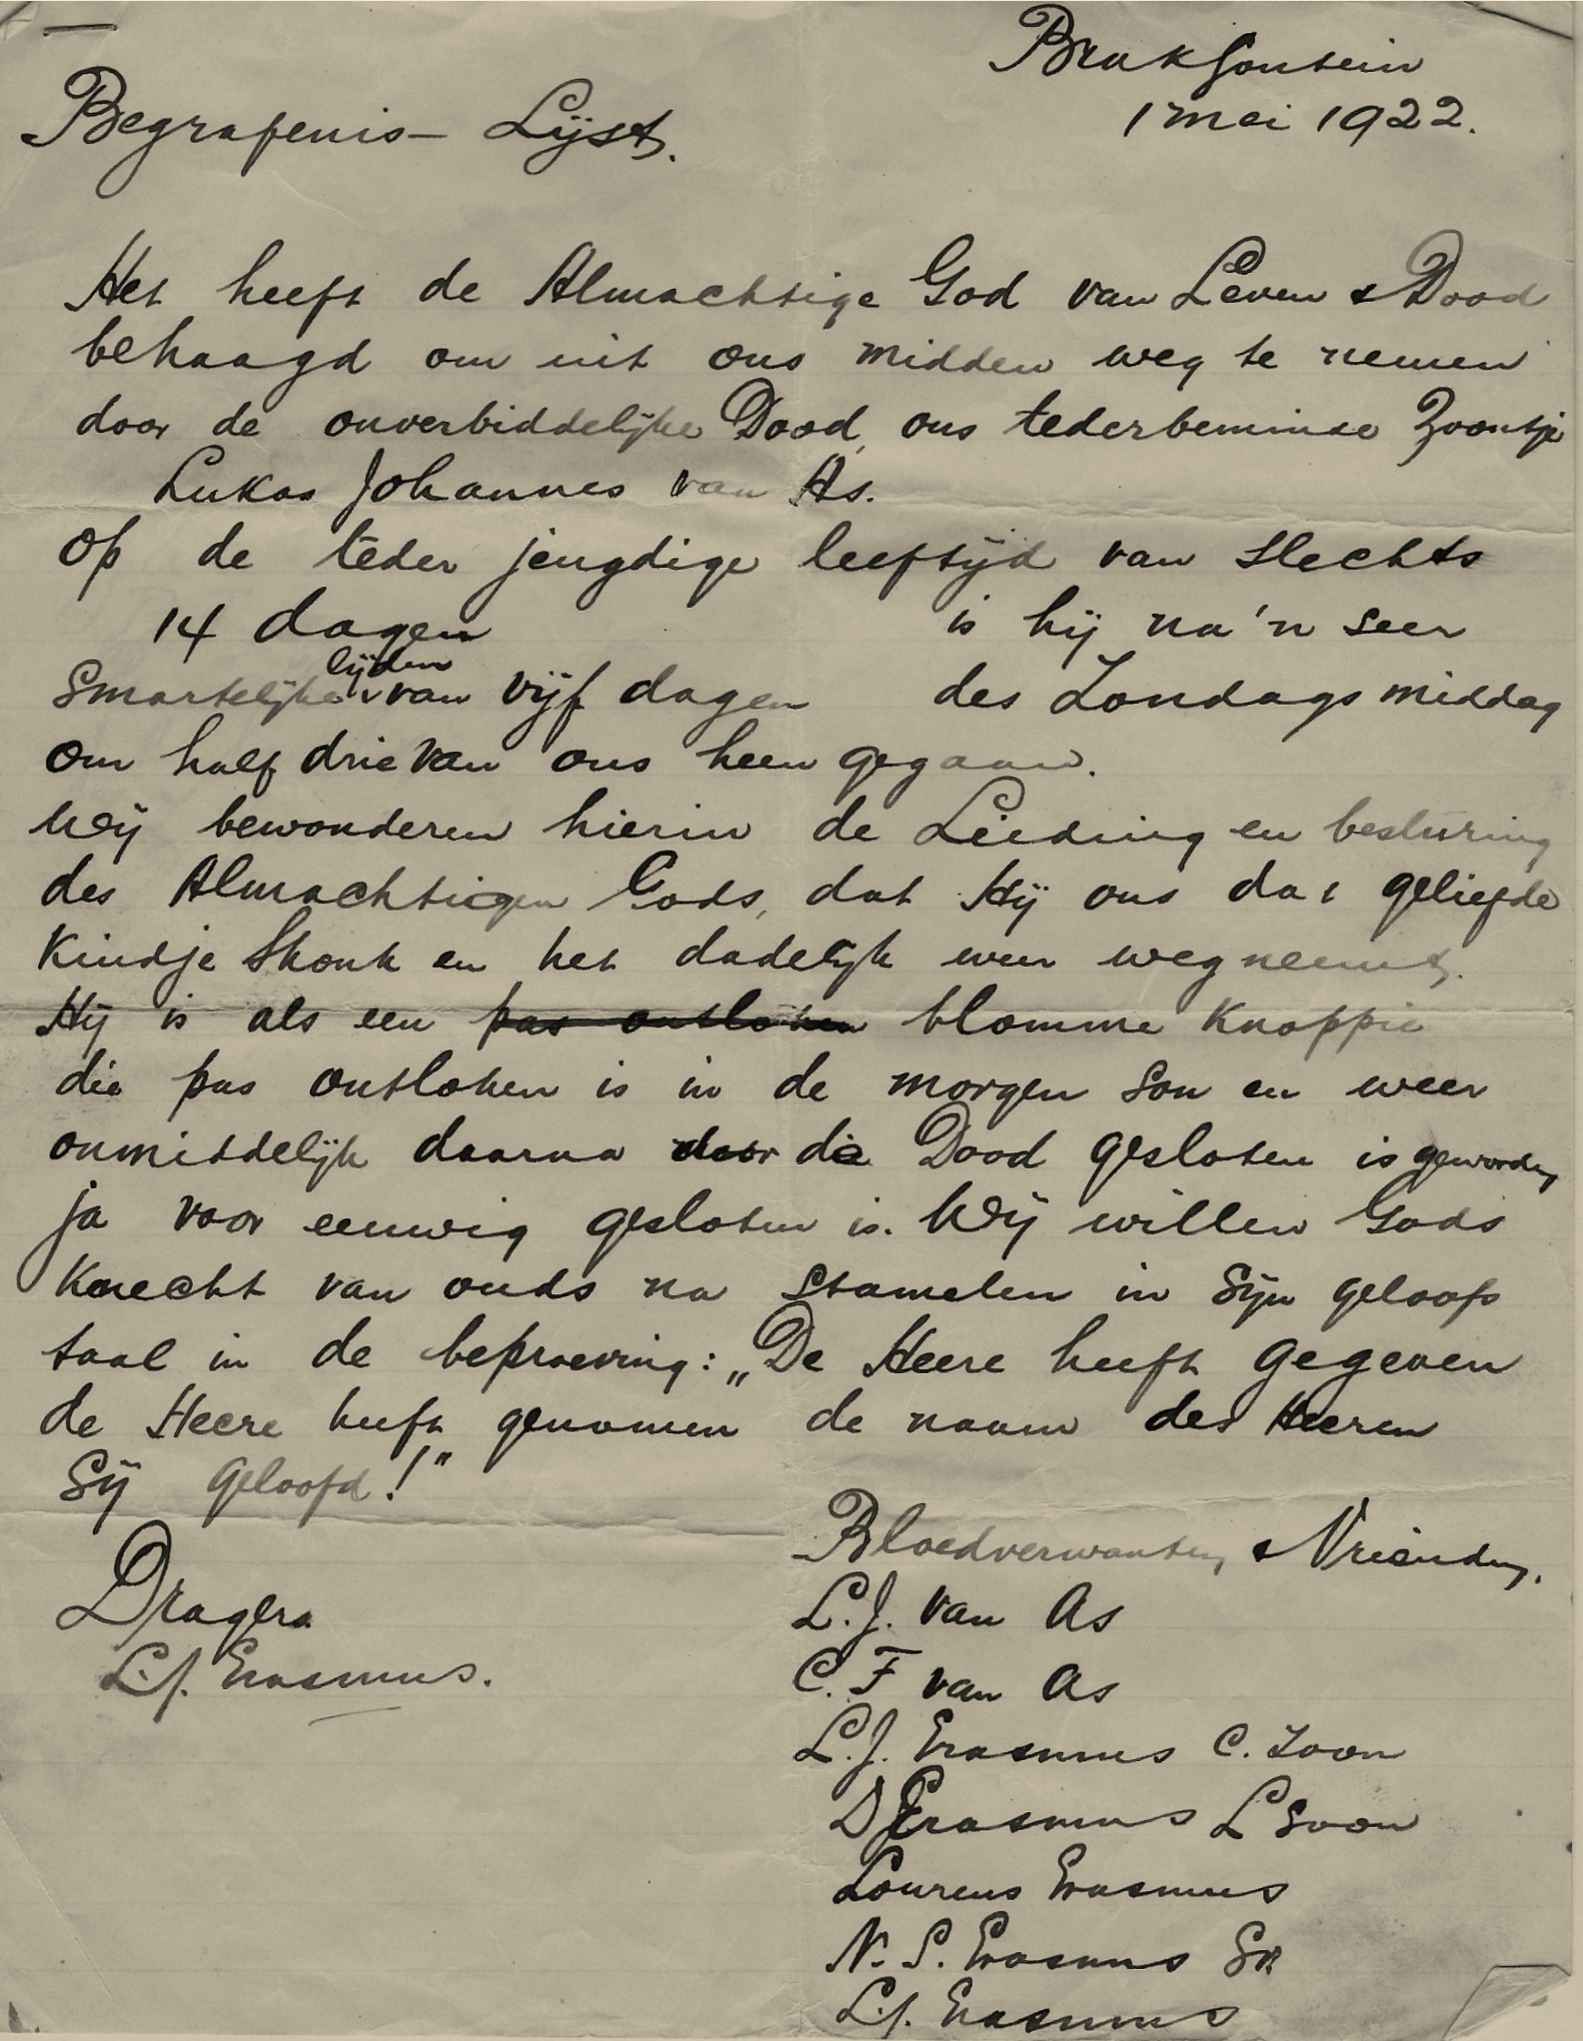 Brakfontein
1 Mei 1922.
Begrafenis- Lijst.
Het heeft de Almachtige God van Leven & Dood
behaagd om uit ons midden weg te nemen
door de onverbiddelijke Dood, ons tederbeminde Zoontje
Lukas Johannes van As.
Op de teder jeugdige leeftijd van slechts
14 dagen is hij na 'n seer
smartelijke lijden van vijf dagen des Zondags middag
om half drie van ons heen gegaan.
Wij bewonderen hierin de Leiding en besturing
des Almachtigen Gods, dat Hij ons dat geliefde
Kindje Skonk en het dadelijk weer wegneemt.
Hij is als een pas ontloken blomme Knoppie
die pas ontloken is in de morgen son en weer
onmiddelijk daarna door die Dood gesloten is geworden,
ja voor eeuwig gesloten is. Wij willen Gods
Knecht van ouds na stamelen in Sijn geloofs
taal in de beproeving: „De Heere heeft gegeven
de Heere heeft genomen de naam des Heeren
Sij geloofd!"
Bloedverwanten, & Vrienden,
Dragers
L.J. van As
L.J. Erasmus.
C. F van As
L.J. Erasmus C. Zoon
D Erasmus L Soon
Lourens Erasmus
N. S. Erasmus Sr.
L.J. Erasmus